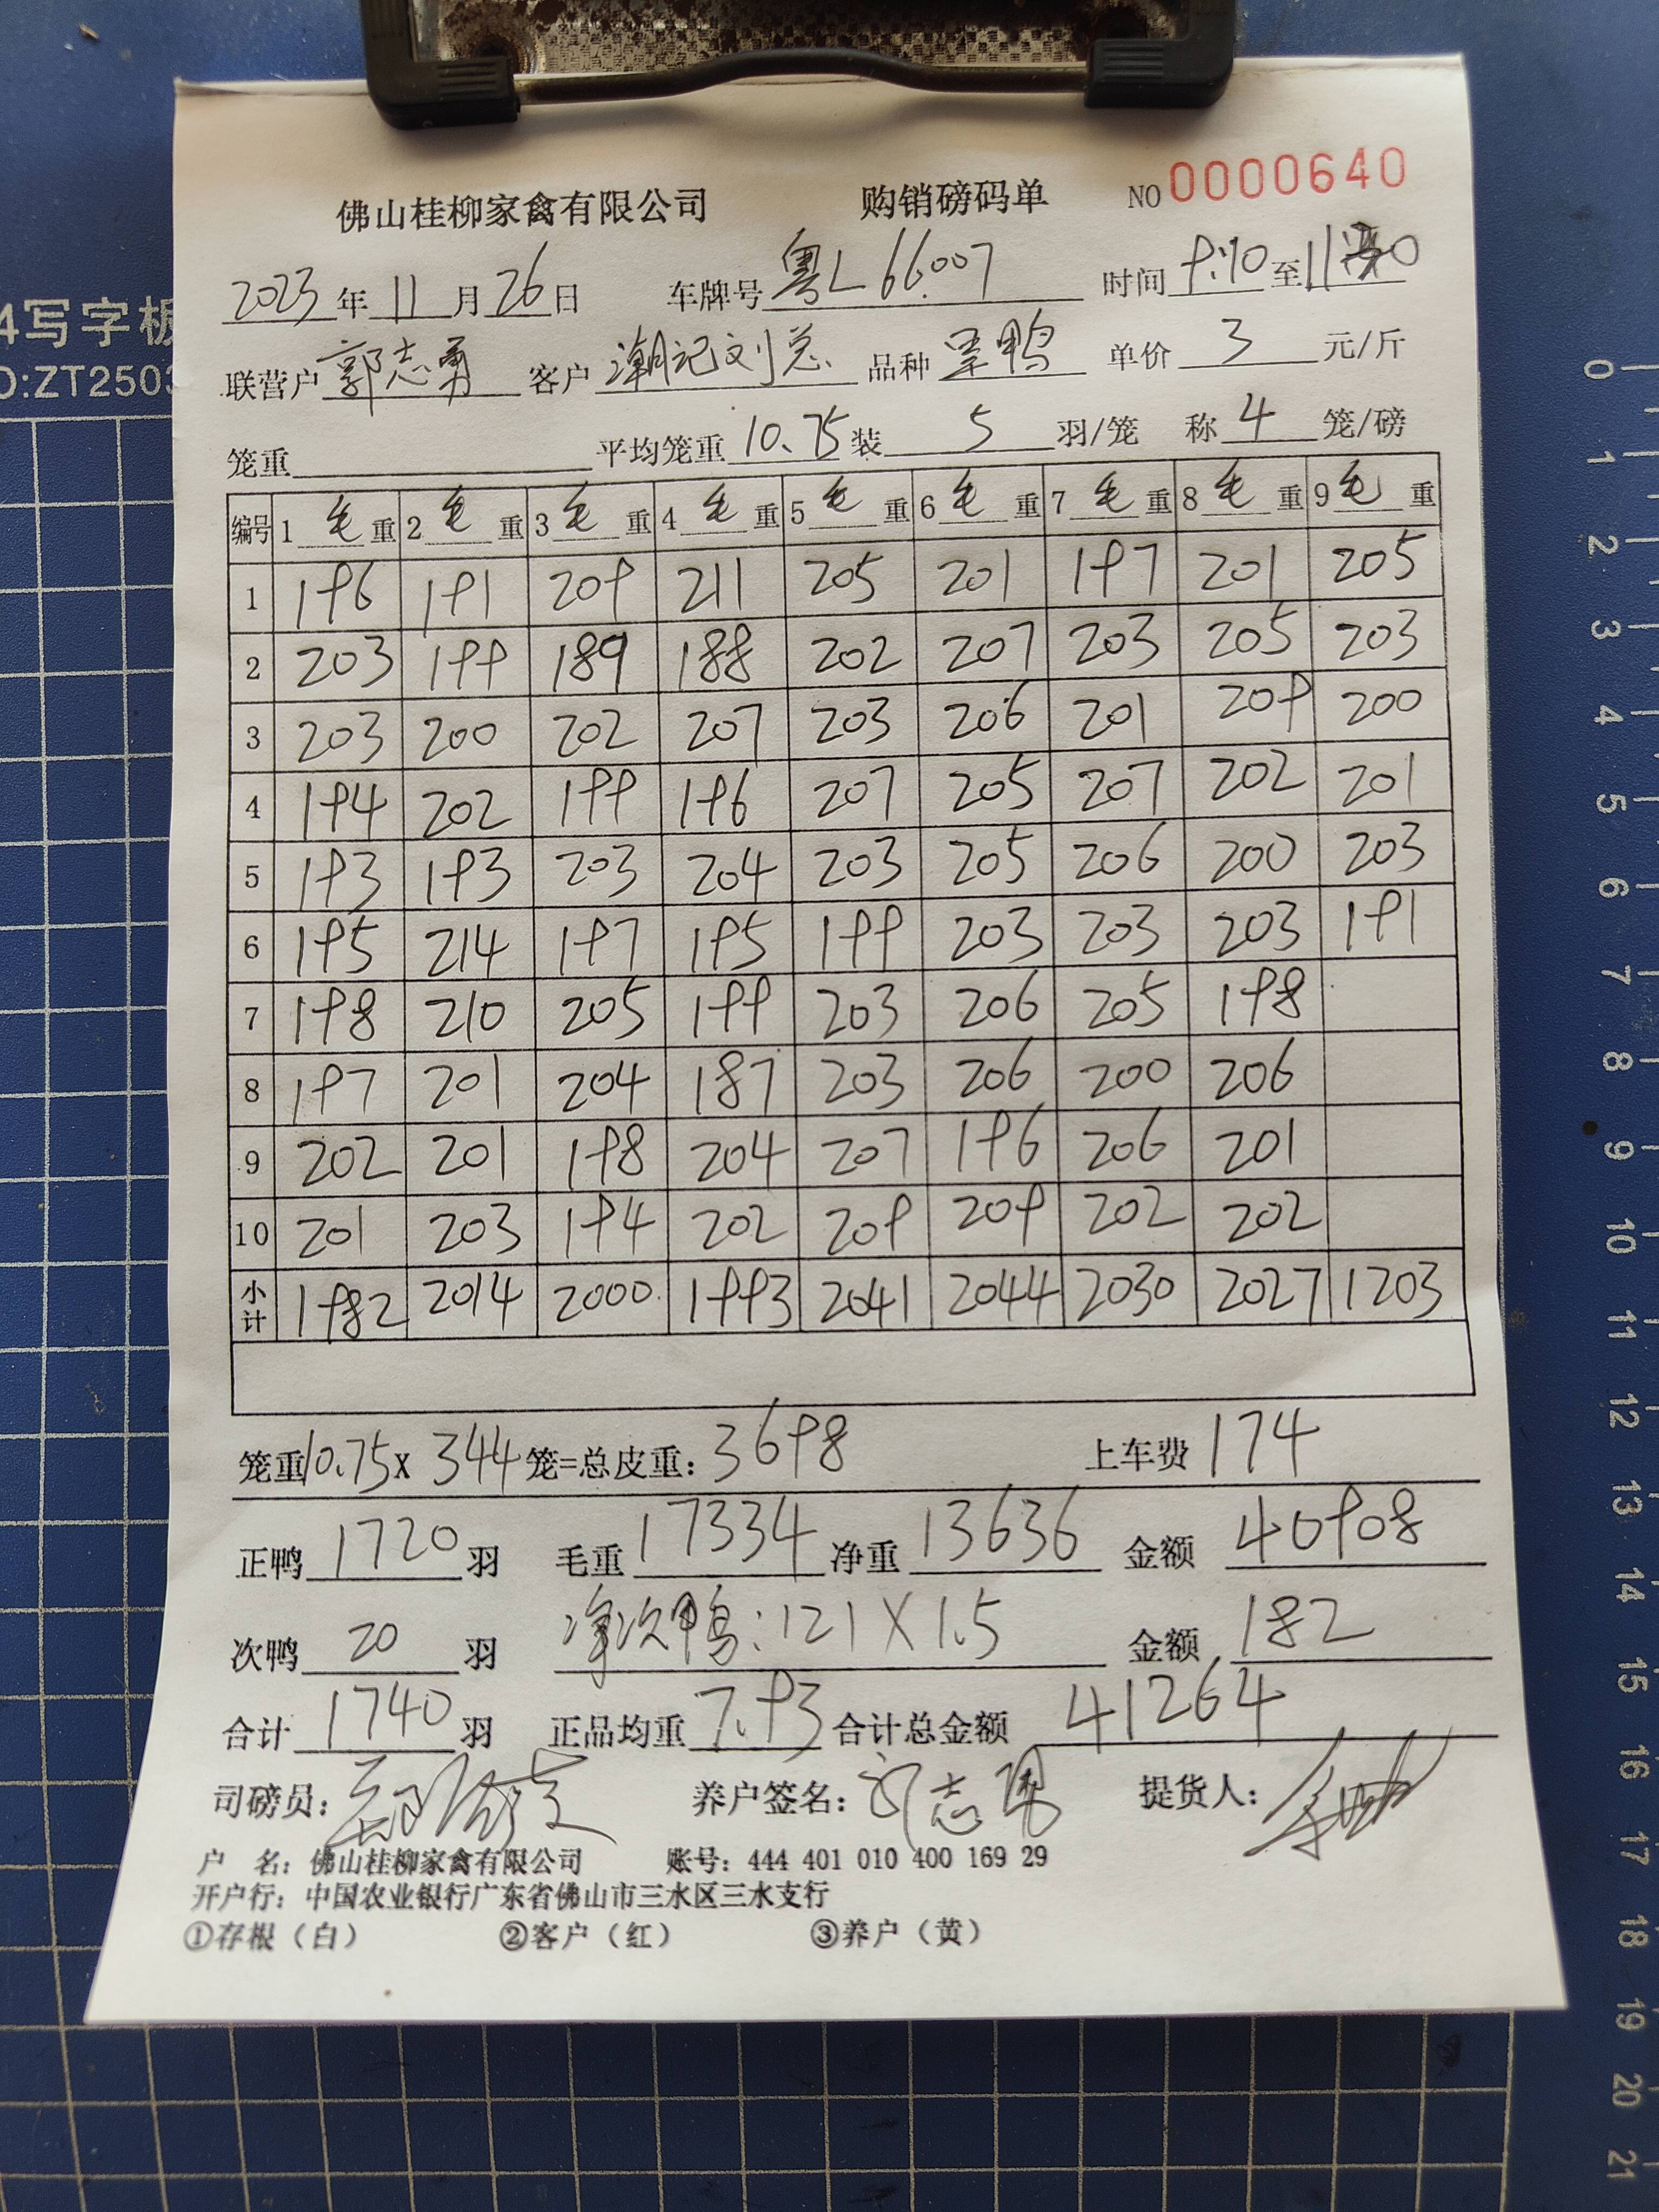 佛山桂柳家禽有限公司 购销磅码单 NO 0000640
2023年11月26日 车牌号 粤L66007 时间 9:10 至
联营户 郭志勇 客户 潮记刘总 品种 单价 3 元/斤
笼重 平均笼重 10.75 装 5 羽/笼 称 4 笼/磅
编号 1 毛 重 2 毛 重 3 毛 重 4 毛 重 5 毛 重 6 毛 重 7 毛 重 8 毛 重 9 毛 重
1 196 191 209 211 205 201 197 201 205
2 203 199 189 188 202 207 203 205 203
3 203 200 202 207 203 206 201 209 200
4 194 202 199 196 207 205 207 202 201
5 193 193 203 204 203 205 206 200 203
6 195 214 197 195 199 203 203 203 191
7 198 210 205 199 203 206 205 198
8 197 201 204 187 203 206 200 206
9 202 201 198 204 207 196 206 201
10 201 203 194 202 209 209 202 202
小计 1982 2014 2000 1993 2041 2044 2030 2027 1203
笼重10.75x 344 笼=总皮重: 3698 上车费 174
正鸭 1720 羽 毛重 17334 净重 13636 金额 40908
次鸭 20 羽 净次鸭:121X1.5 金额 182
合计 1740 羽 正品均重 7.93 合计总金额 41264
司磅员: 养户签名: 郭志勇 提货人:
户 名: 佛山桂柳家禽有限公司 账号: 444 401 010 400 169 29
开户行: 中国农业银行广东省佛山市三水区三水支行
①存根(白) ②客户(红) ③养户(黄)
4写字板
O:ZT2503
0
1
2
3
4
5
6
7
8
9
10
11
12
13
14
15
16
17
18
19
20
21